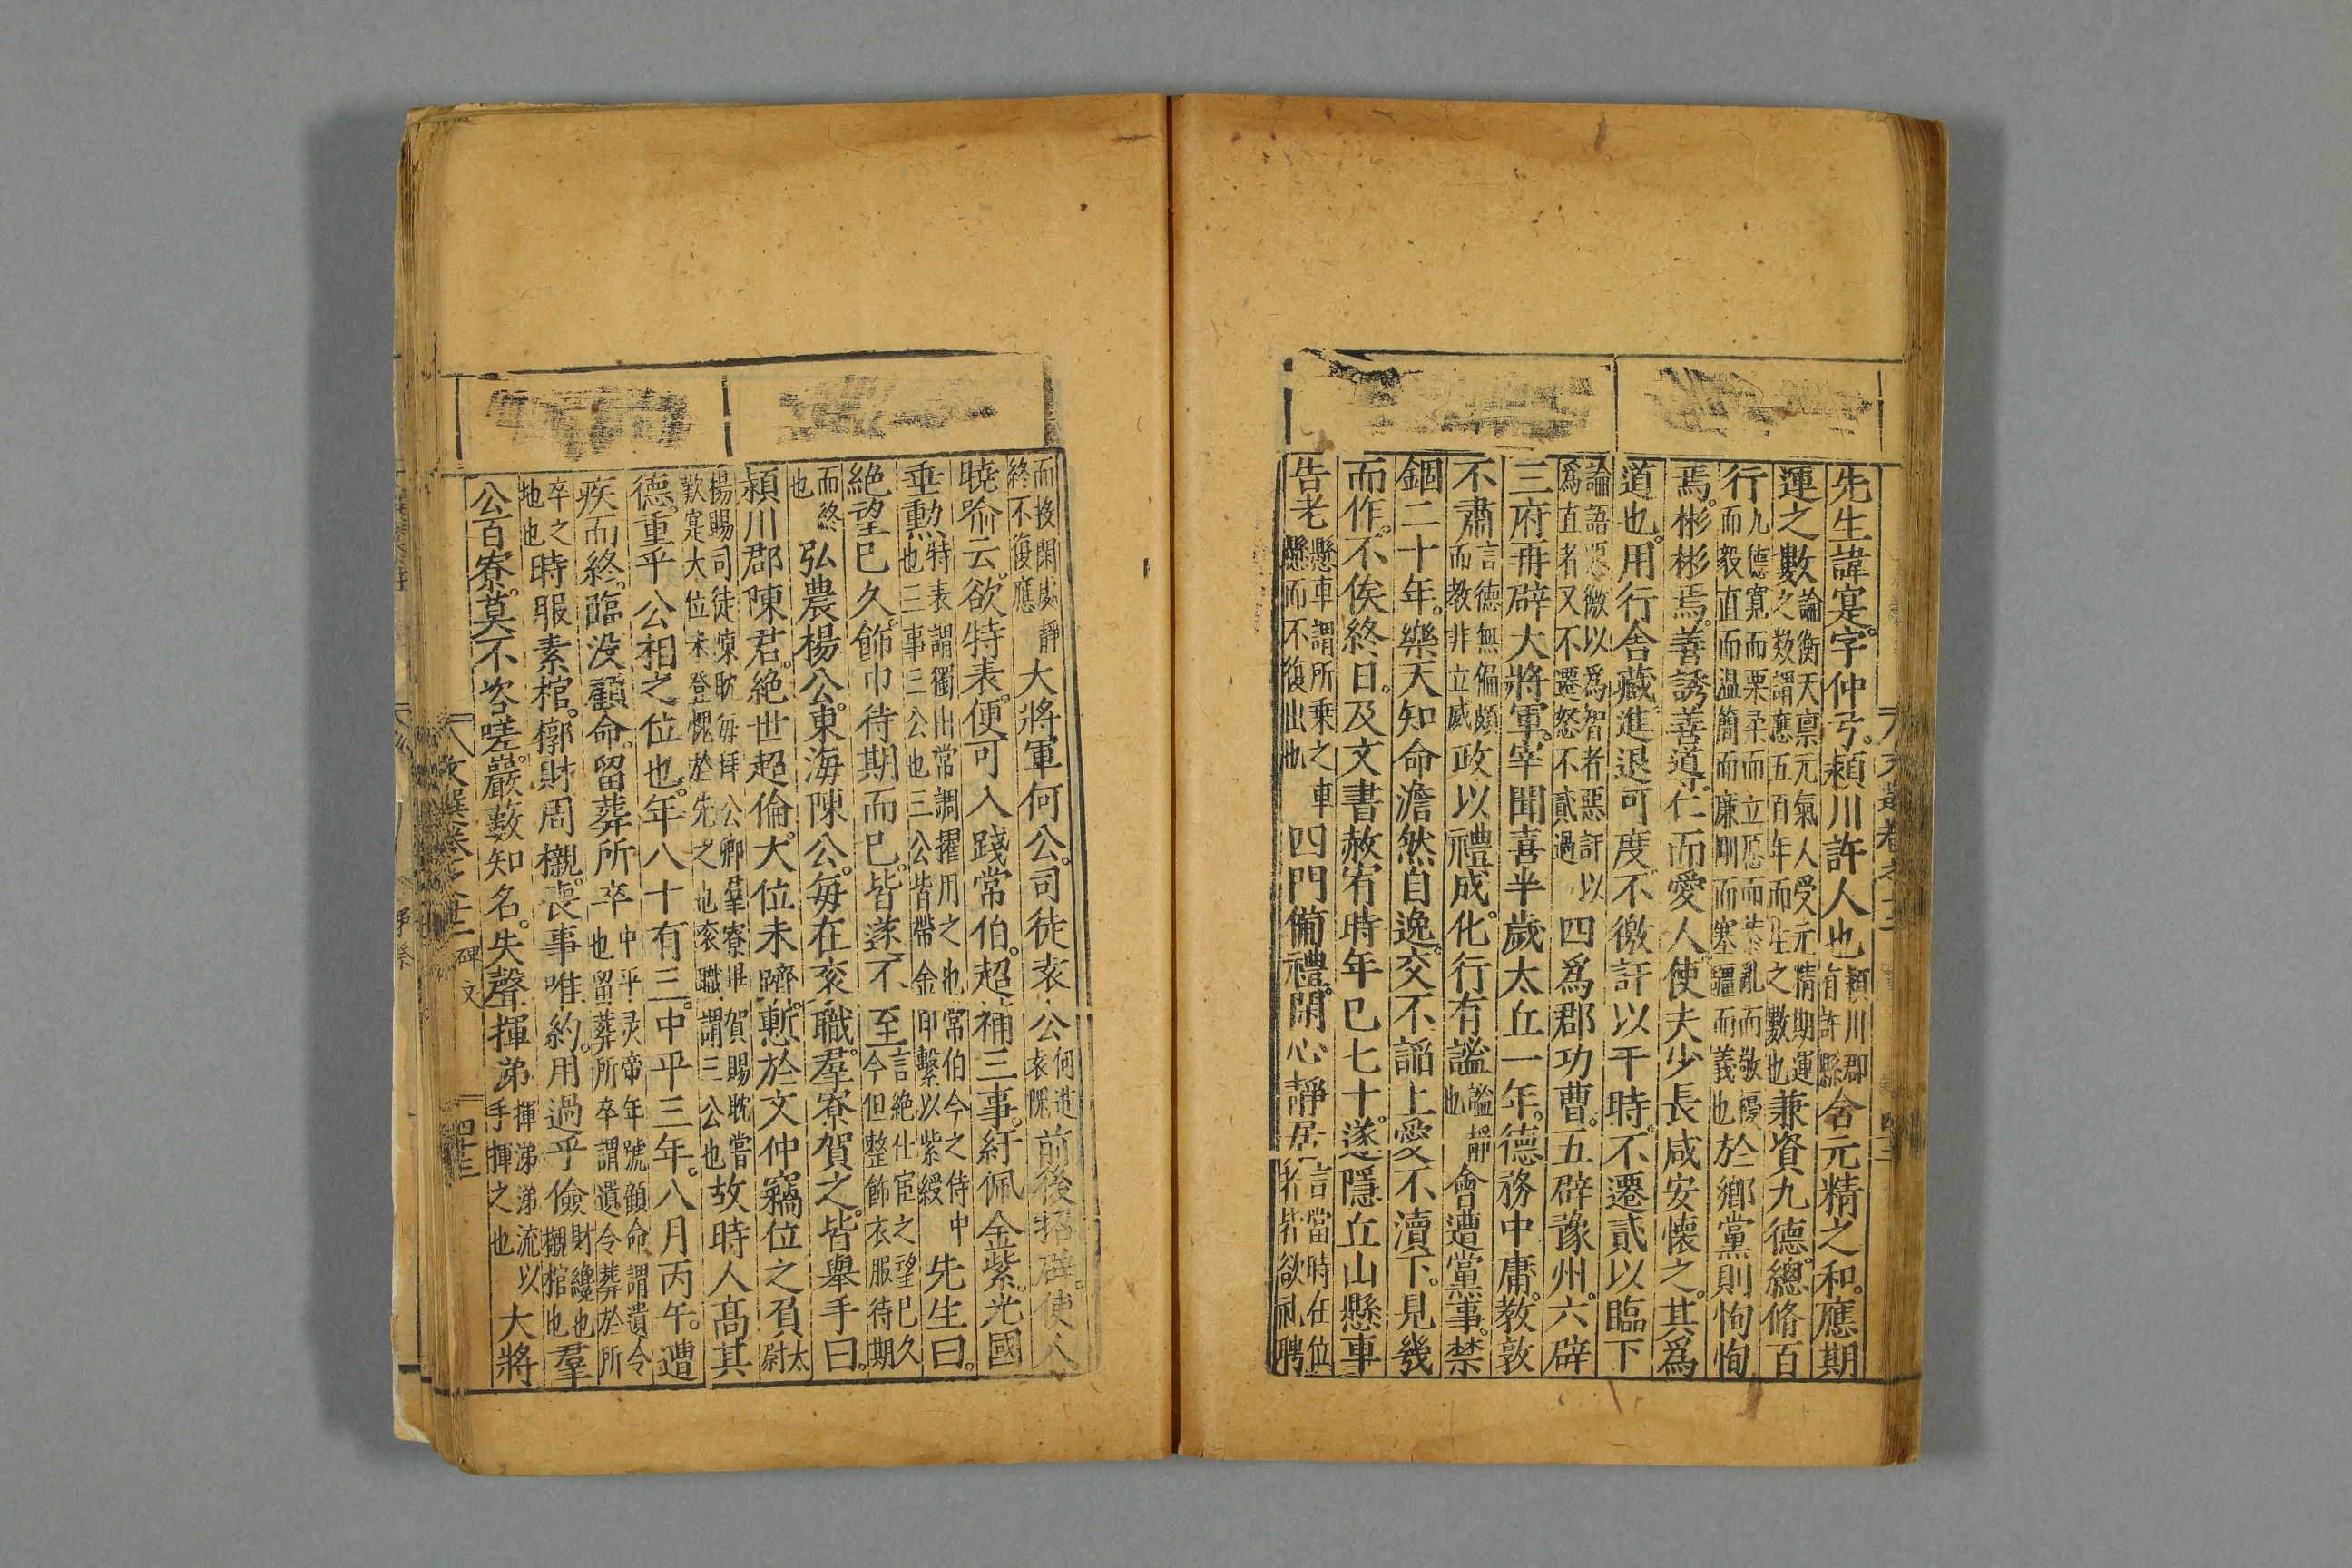 先生諱寔。字仲弓。頴川許人也頴川郡有許縣含元精之和。應期
運之數論衡天禀元氣人受元精期運之数謂應五百年而生之數也兼資九德。總脩百
行九德寬而栗柔而立愿而恭亂而敬擾而毅直而温簡而廉剛而塞疆而義也於鄉黨則恂恂
焉。彬彬焉。善誘善導。仁而愛人。使夫少長咸安懷之。其爲
道也。用行舍藏。進退可度。不徼訐以干時。不遷貳以臨下
論語惡徼以爲智者惡訐以爲直者又不遷怒不貳過四爲郡功曹。五辟豫州。六辟
三府。再辟大將軍。宰聞喜半歲太丘一年。德務中庸。教敦
不肅言德無偏頗而教非立威政以禮成。化行有謐謐靜也會遭黨事。禁
錮二十年。樂天知命澹然自逸。交不謟上愛不瀆下。見幾
而作。不俟終日。及文書赦宥時年已七十。遂隱丘山懸車
告老懸車謂所乗之車懸而不復出也四門備禮。閑心靜居言當時在位者皆欲礼聘
而投閑處靜終不復應大將軍何公。司徒袁公何進袁隗前後招辟。使人
曉喻云。欲特表。便可入踐常伯。超補三事。紆佩金紫。光國
垂勲特表謂獨出常調擢用之也常伯今之侍中也三事三公也三公皆帶金印繫以紫綬先生曰。
絶望已久。飾巾待期而已。皆遂不至言絶仕宦之望已久今但整飾衣服待期
而終也弘農楊公。東海陳公。每在衮職。羣寮賀之。皆舉手曰。
頴川郡陳君。絶世超倫。大位未躋。慙於文仲竊位之負太尉
楊賜司徒陳耽每拜公卿羣寮畢賀賜耽嘗歎寔大位未登愧於先之也衮職謂三公也故時人高其
德。重乎公相之位也。年八十有三。中平三年。八月丙午。遭
疾而終。臨没顧命。留葬所卒中平灵帝年號顧命謂遺令也留葬所卒謂遺令葬於所
卒之地也時服素棺。槨財周櫬。喪事唯約。用過乎儉財纔也櫬棺也羣
公百寮。莫不咨嗟。巖藪知名。失聲揮涕揮涕涕流以手揮之也大將
文選卷之廿二
碑文
四十三